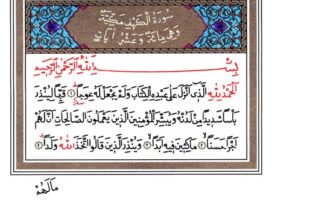 سورة الكهف مكية
وهي مائة وعشر آيات
بسم الله الرحمن الرحيم
الحمد لله الذي أنزل على عبده الكتاب ولم يجعل له عوجا ۝ قيما لينذر
بأسا شديدا من لدنه ويبشر المؤمنين الذين يعملون الصالحات أن لهم
أجرا حسنا ۝ ماكثين فيه أبدا ۝ وينذر الذين قالوا اتخذ الله ولدا ۝
ما لهم